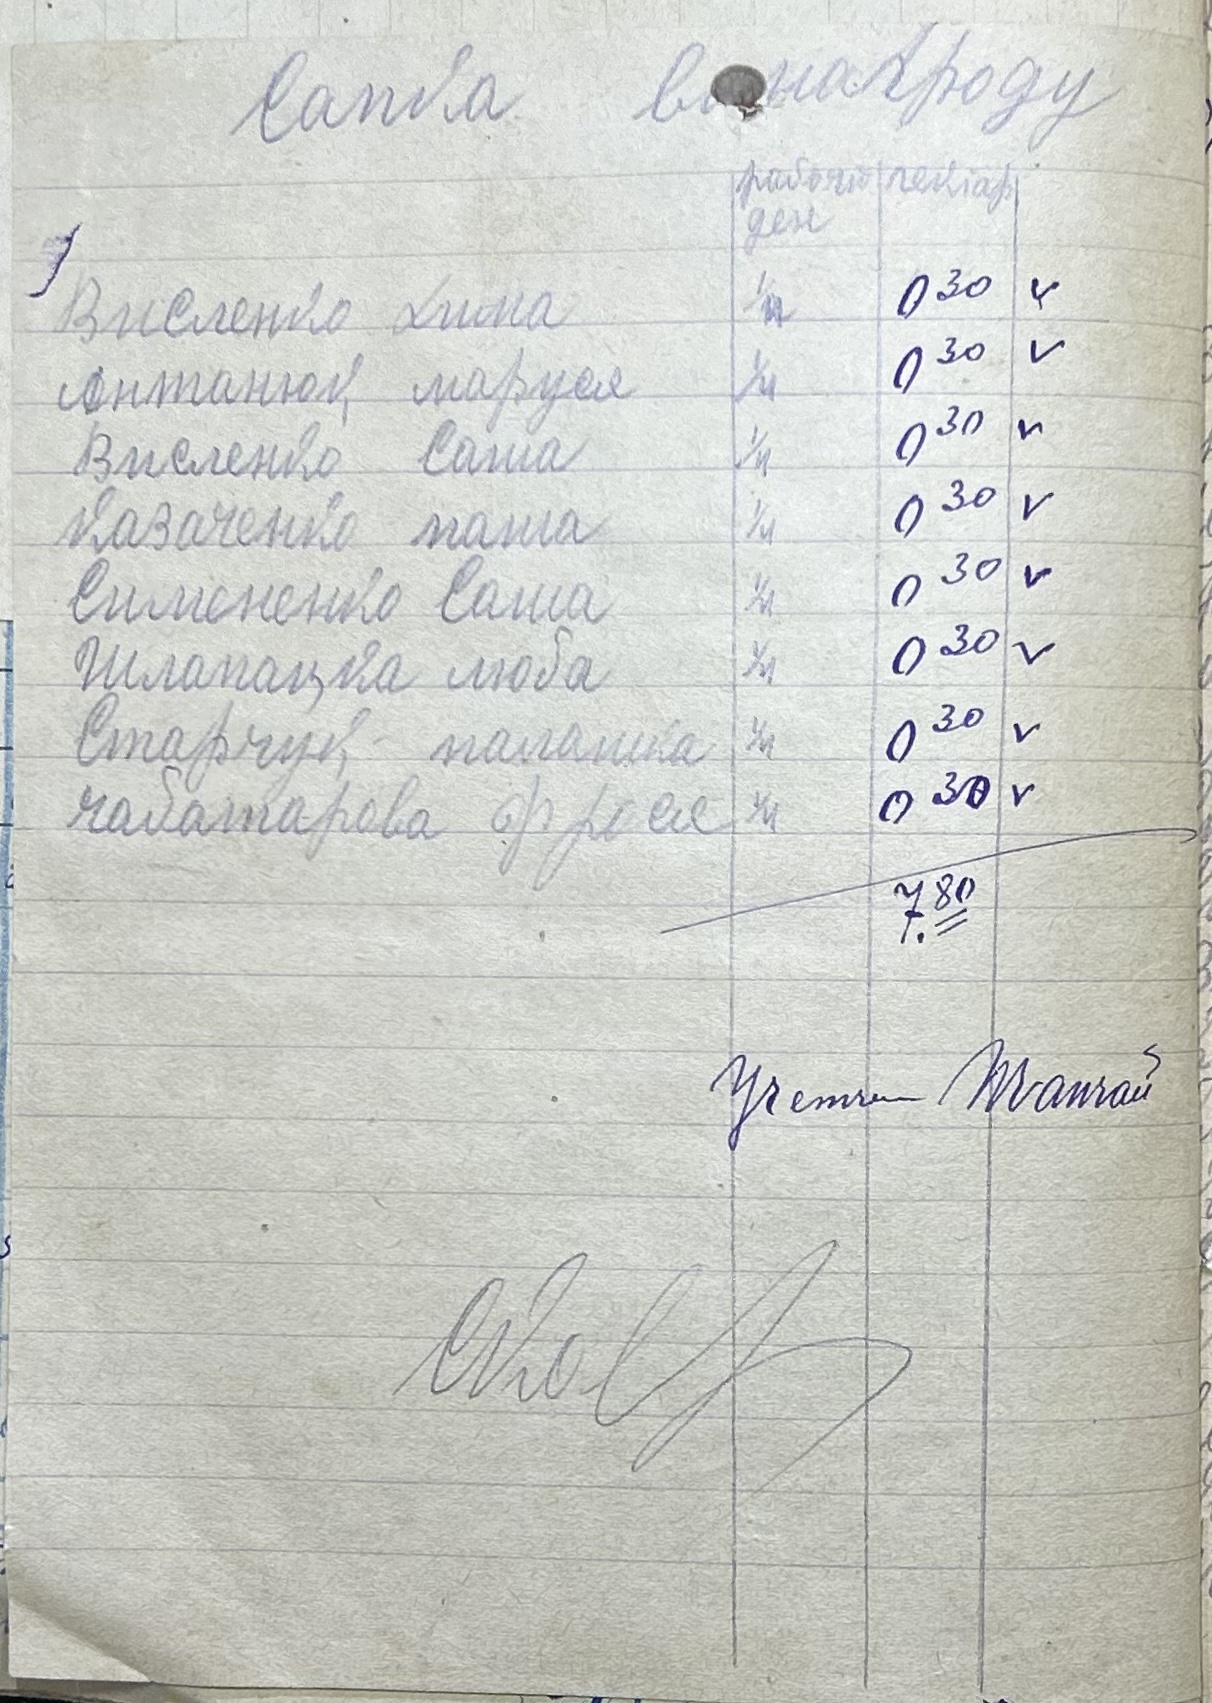 Сапка винаграду
рабочи гектар
ден
Висленко Лина 1/н 0 30 v
Антанюк маруся 1/н 0 30 v
Висленко Саша 1/н 0 30 v
Казаченко паша 1/н 0 30 v
Симоненко Саша 1/н 0 30 v
Шлапацка люба 1/н 0 30 v
Старчук палашка 1/н 0 30 v
чабатарова фрося 1/н 0 30 v
7.80
Учетчик